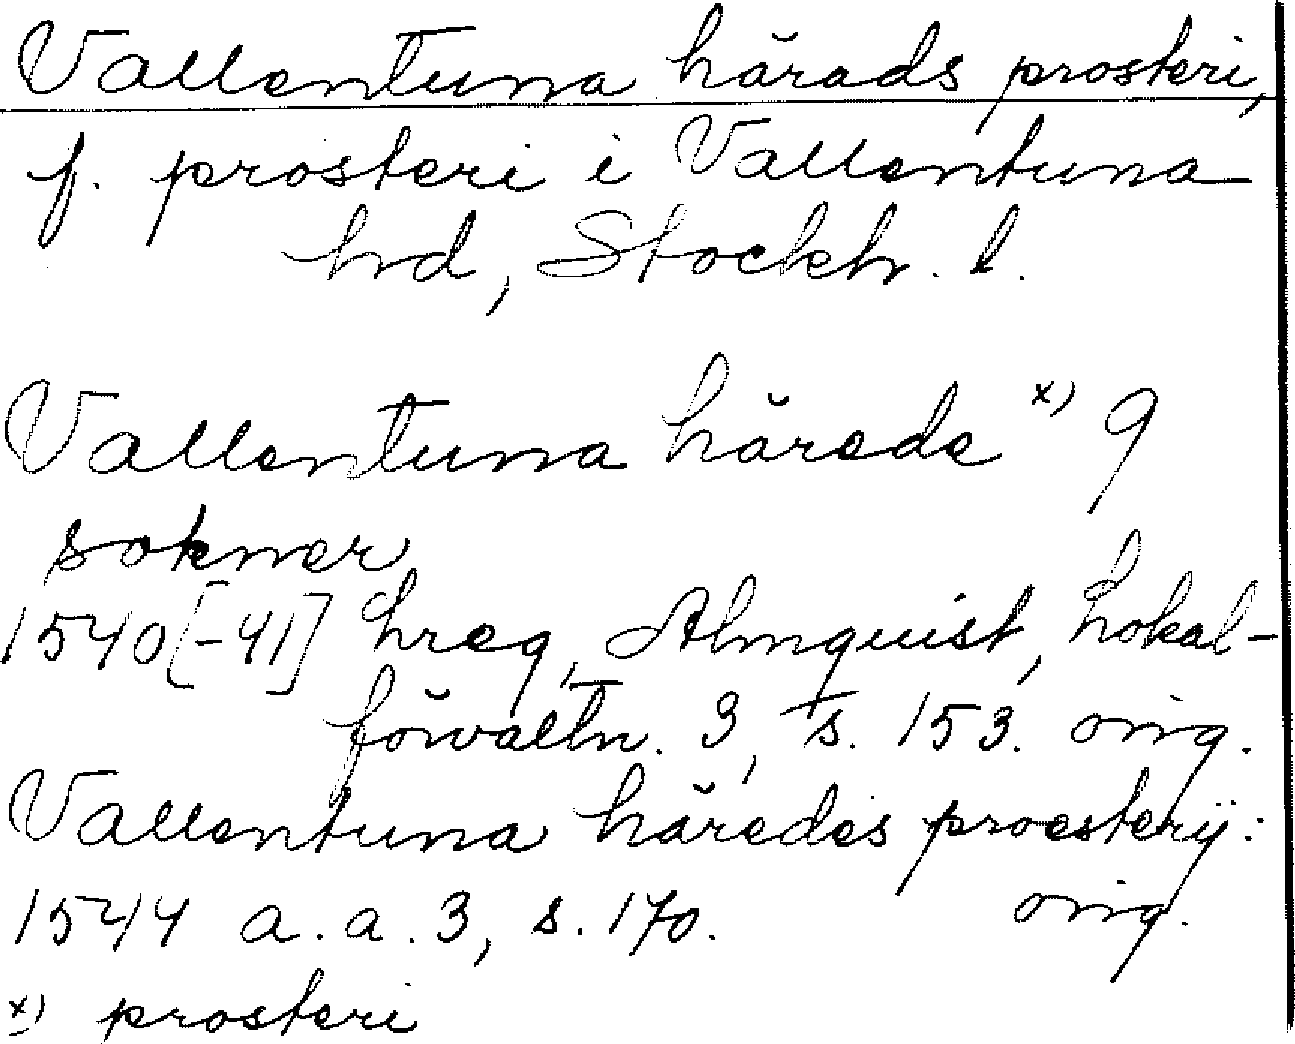 Vallentuna härads prosteri,
f. prosteri i Vallentuna
hrd, Stockh. l.
Vallentuna härede x) 9
sokner
1540[-41] hreg, Almquist, Lokal-
förvaltn. 3, s. 153. orig.
Vallentuna häredes proesterÿ:
1544 a.a. 3, s. 170. orig.
x) prosteri